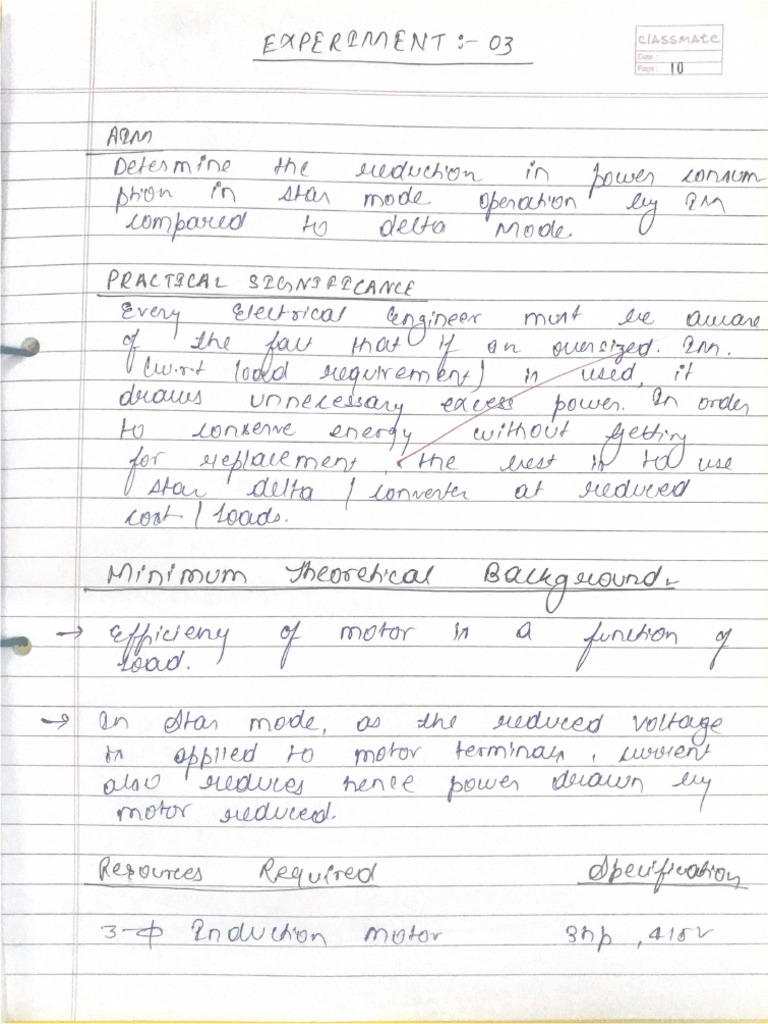 EXPERIMENT :- 03
classmate
Date :
Page : 10
AIM
Determine the reduction in power consum
ption in star mode operation by IM
compared to delta mode.
PRACTICAL SIGNIFICANCE
Every Electrical Engineer must be aware
of the fact that if an oversized. Im.
(w.r.t load requirement) is used, it
draws unnecessary excess power. In order
to conserve energy without getting
for replacement, the best is to use
star delta / converter at reduced
cost / loads.
Minimum Theoretical Background:-
→ Efficieny of motor is a function of
load.
→ In Star mode, as the reduced voltage
is applied to motor terminals, current
also reduces hence power drawn by
motor reduced.
Resources Required Specification
3-ф Induction motor 3hp, 415V